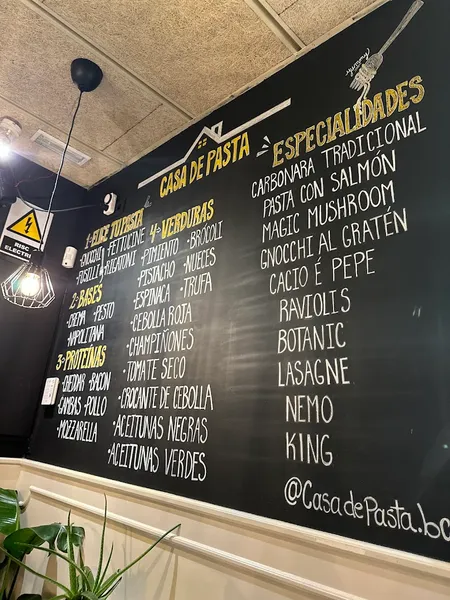 CASA DE PASTA
1-ELIGE TU PASTA
•GNOCCHI •FETTUCINE
•FUSILLI •RIGATONI
2-BASES
•CREMA •PESTO
•NAPOLITANA
3-PROTEÍNAS
•CHEDDAR •BACON
•GAMBAS •POLLO
•MOZZARELLA
4-VERDURAS
•PIMIENTO •BRÓCOLI
•PISTACHO •NUECES
•ESPINACA •TRUFA
•CEBOLLA ROJA
•CHAMPIÑONES
•TOMATE SECO
•CROCANTE DE CEBOLLA
•ACEITUNAS NEGRAS
•ACEITUNAS VERDES
ESPECIALIDADES
CARBONARA TRADICIONAL
PASTA CON SALMÓN
MAGIC MUSHROOM
GNOCCHI AL GRATÉN
CACIO É PEPE
RAVIOLIS
BOTANIC
LASAGNE
NEMO
KING
@CasadePasta.bc
RISC
ELÈCTRIC